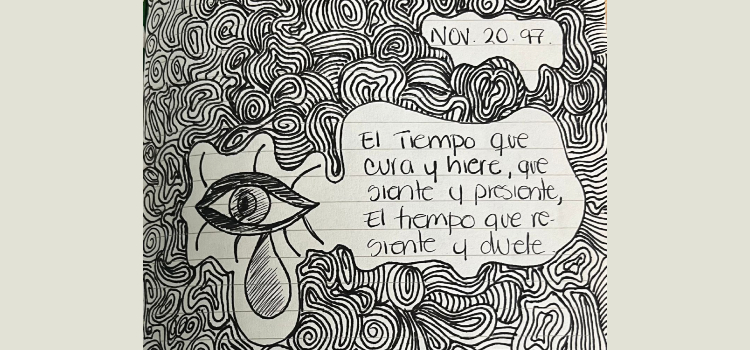 NOV. 20. 97.
El Tiempo que
cura y hiere, que
siente y presiente,
El tiempo que re-
siente y duele